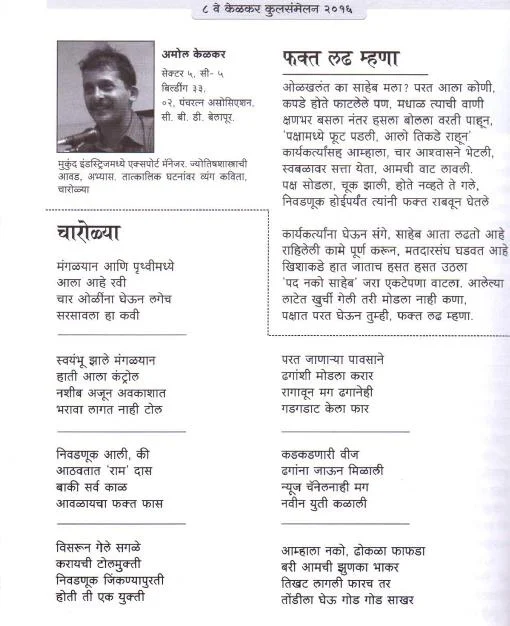 ८ वे केळकर कुलसंमेलन २०१६
अमोल केळकर
सेक्टर ५, सी- ५
बिल्डींग ३३,
०२, पंचरत्न असोसिएशन,
सी. बी. डी. बेलापूर.
मुकुंद इंडस्ट्रिजमध्ये एक्सपोर्ट मॅनेजर. ज्योतिषशास्त्राची
आवड, अभ्यास. तात्कालिक घटनांवर व्यंग कविता,
चारोळ्या
फक्त लढ म्हणा
ओळखलंत का साहेब मला? परत आला कोणी,
कपडे होते फाटलेले पण, मधाळ त्याची वाणी
क्षणभर बसला नंतर हसला बोलला वरती पाहून,
'पक्षामध्ये फूट पडली, आलो तिकडे राहून'
कार्यकर्त्यांसह आम्हाला, चार आश्वासने भेटली,
स्वबळावर सत्ता येता, आमची वाट लावली.
पक्ष सोडला, चूक झाली, होते नव्हते ते गले,
निवडणूक होईपर्यंत त्यांनी फक्त राबवून घेतले
कार्यकर्त्यांना घेऊन संगे, साहेब आता लढतो आहे
राहिलेली कामे पूर्ण करून, मतदारसंघ घडवत आहे
खिशाकडे हात जाताच हसत हसत उठला
'पद नको साहेब' जरा एकटेपणा वाटला. आलेल्या
लाटेत खुर्ची गेली तरी मोडला नाही कणा,
पक्षात परत घेऊन तुम्ही, फक्त लढ म्हणा.
चारोळ्या
मंगळयान आणि पृथ्वीमध्ये
आला आहे रवी
चार ओळींना घेऊन लगेच
सरसावला हा कवी
स्वयंभू झाले मंगळयान
हाती आला कंट्रोल
नशीब अजून अवकाशात
भरावा लागत नाही टोल
निवडणूक आली, की
आठवतात 'राम' दास
बाकी सर्व काळ
आवळायचा फक्त फास
विसरून गेले सगळे
करायची टोलमुक्ती
निवडणूक जिंकण्यापुरती
होती ती एक युक्ती
परत जाणाऱ्या पावसाने
ढगांशी मोडला करार
रागावून मग ढगानेही
गडगडाट केला फार
कडकडणारी वीज
ढगांना जाऊन मिळाली
न्यूज चॅनेलनाही मग
नवीन युती कळाली
आम्हाला नको, ढोकळा फाफडा
बरी आमची झुणका भाकर
तिखट लागली फारच तर
तोंडीला घेऊ गोड गोड साखर